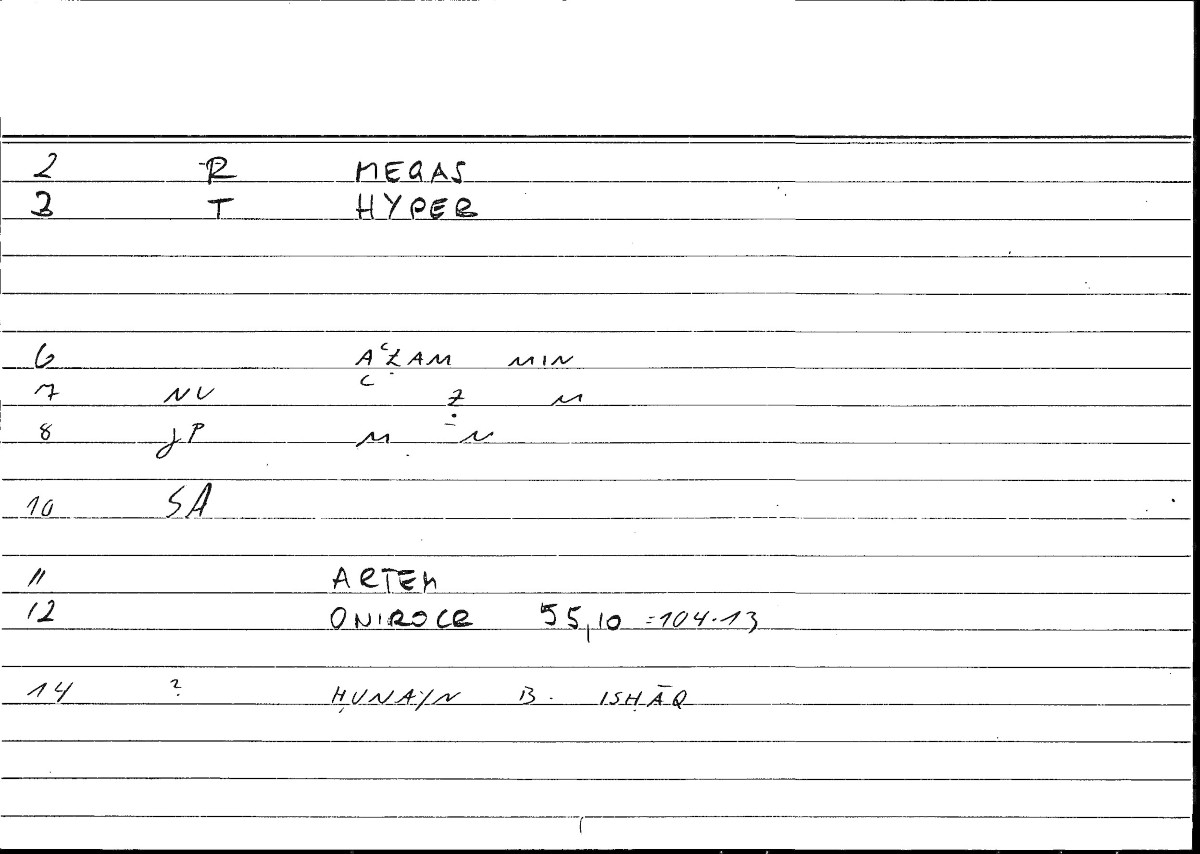 2 R MEGAS
3 T HYPER
6 AʿẒAM MIN
7 NV ʿ Ẓ M
8 JP M M
10 SA
11 ARTEM
12 ONIROCR 55,10 =104.13
14 ? ḤUNAYN B. ISḤĀQ